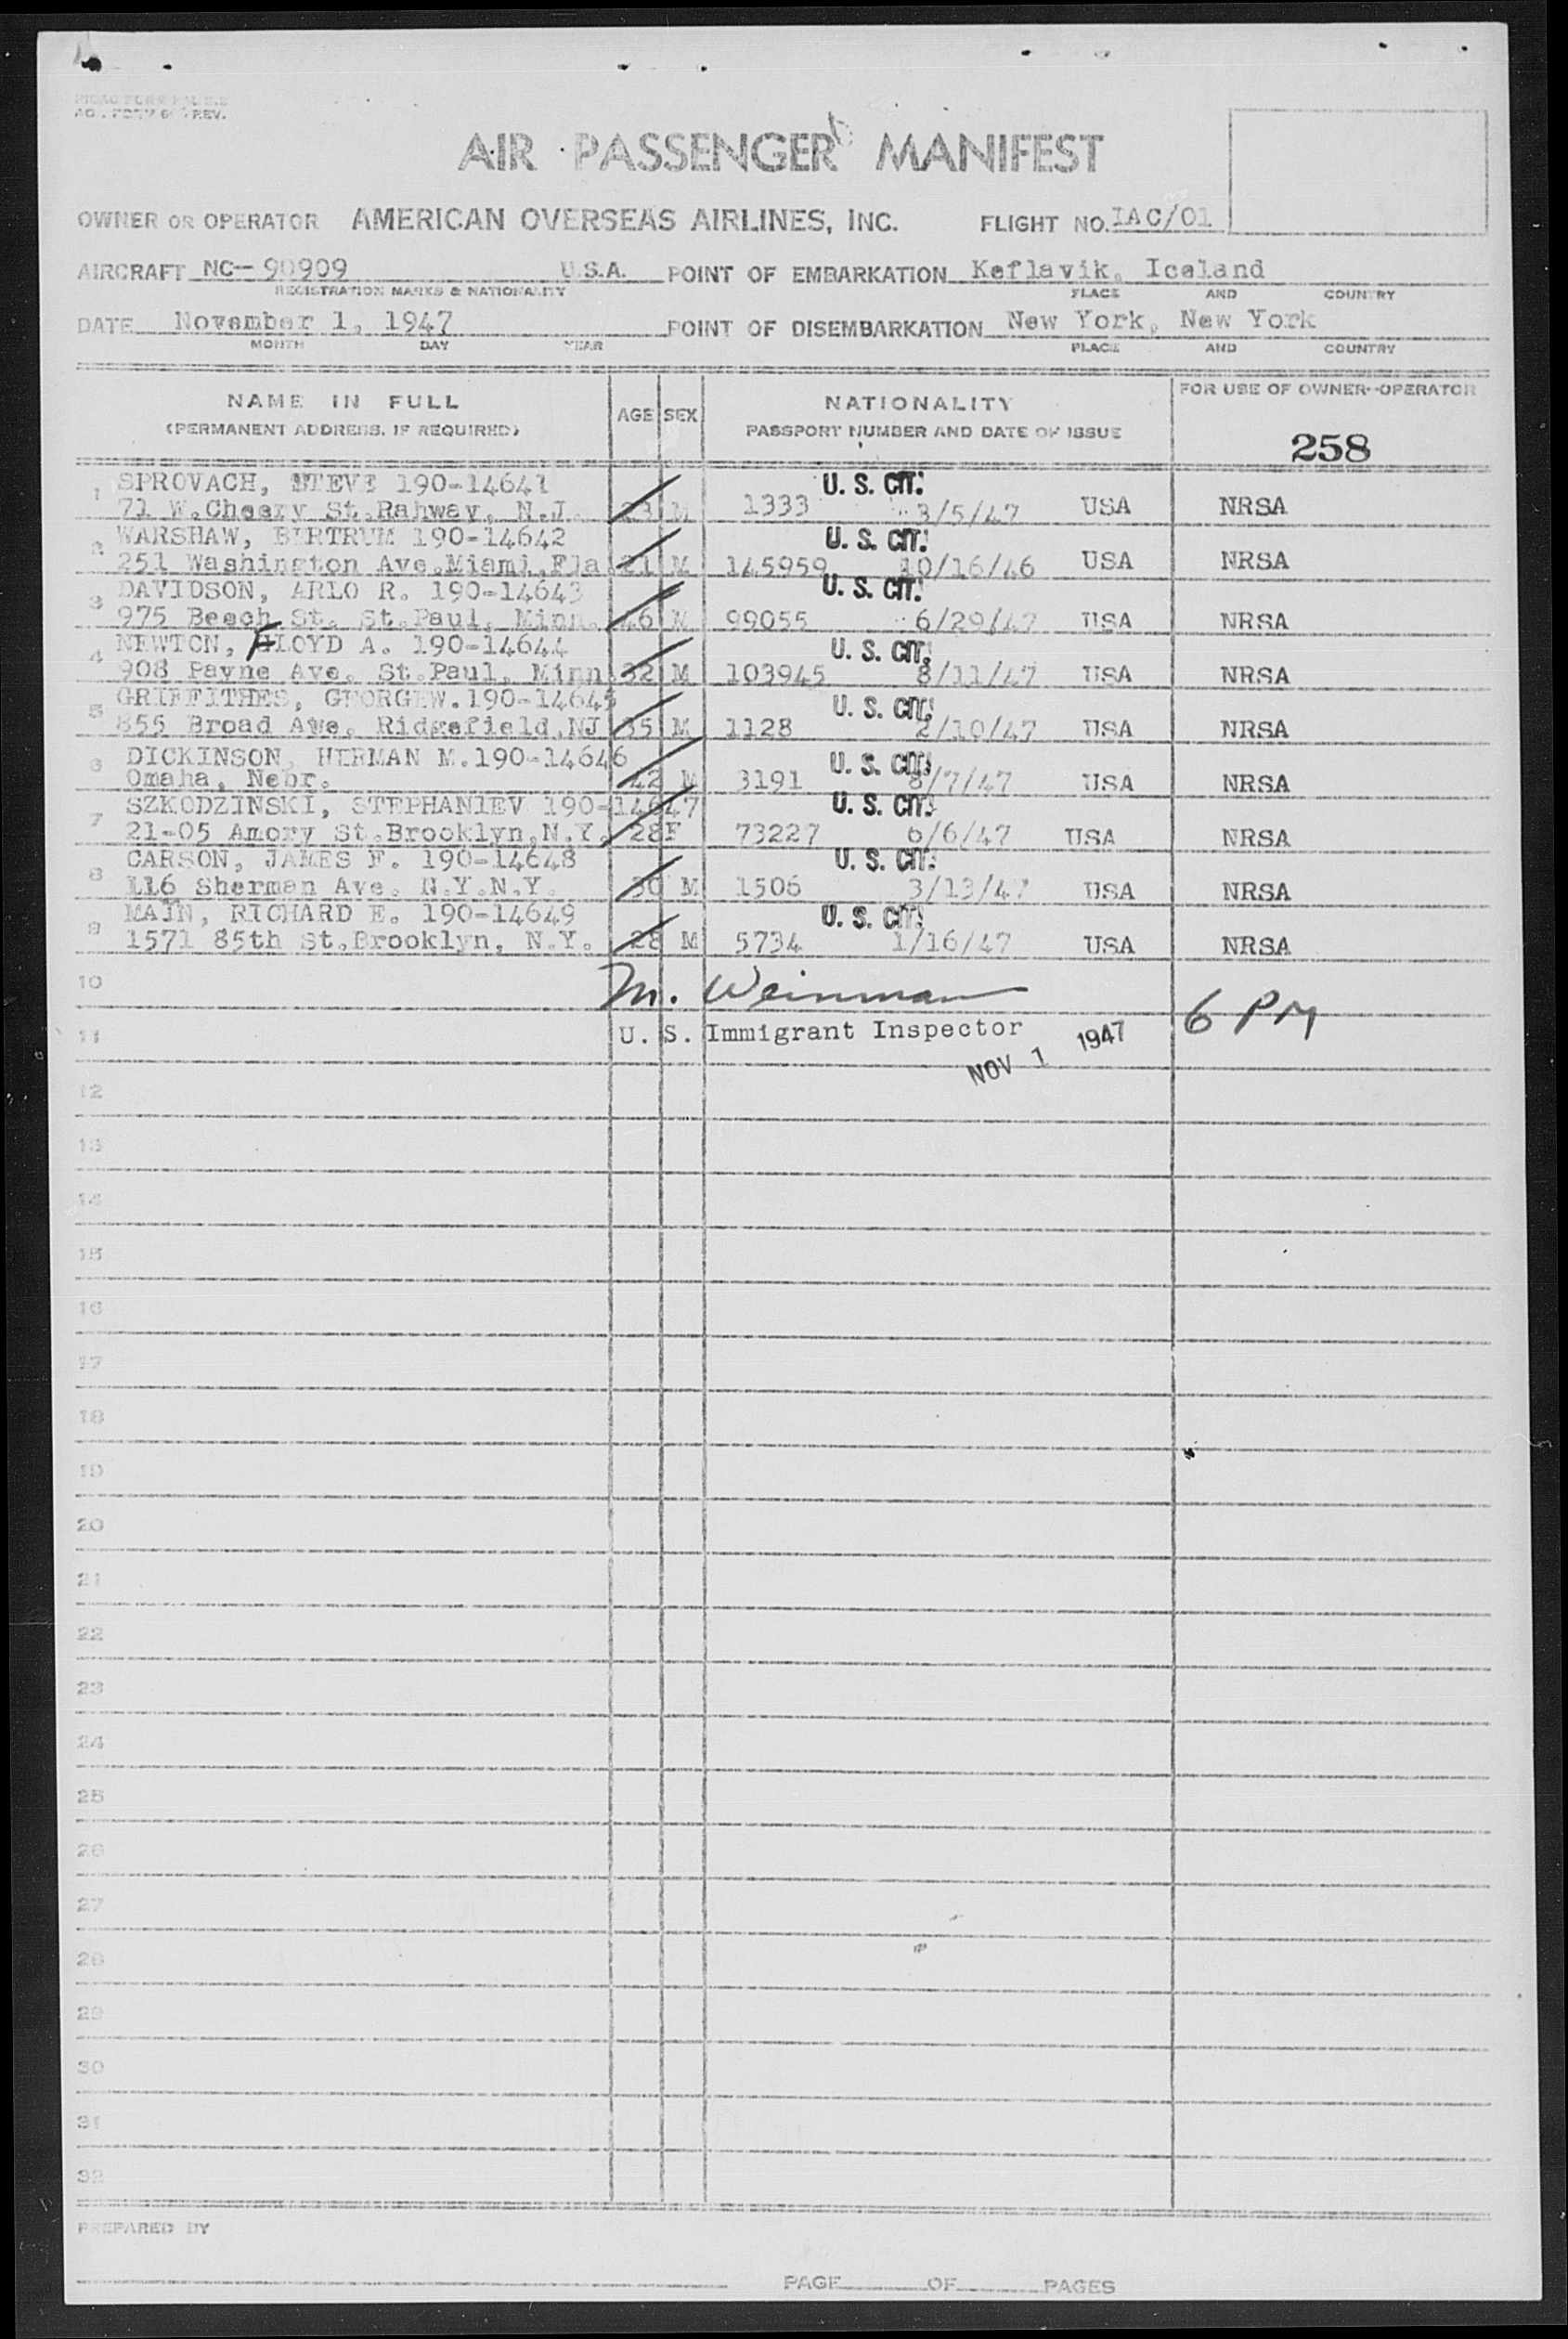 AIR PASSENGER MANIFEST
OWNER OR OPERATOR AMERICAN OVERSEAS AIRLINES, INC. FLIGHT NO. IAC/01
AIRCRAFT NC-- 90909 U.S.A. POINT OF EMBARKATION Keflavik, Iceland
REGISTRATION MARKS & NATIONALITY PLACE AND COUNTRY
DATE November 1, 1947 POINT OF DISEMBARKATION New York, New York
MONTH DAY YEAR PLACE AND COUNTRY
NAME IN FULL AGE SEX NATIONALITY FOR USE OF OWNER-OPERATOR
(PERMANENT ADDRESS, IF REQUIRED) PASSPORT NUMBER AND DATE OF ISSUE
258
1 SPROVACH, STEVE 190-14641 U. S. CIT.
71 W. St. Rahway, N.J. 23 M 1333 3/5/47 USA NRSA
2 WARSHAW, BERTRUM 190-14642 U. S. CIT.
251 Washington Ave. Miami, Fla 21 M 145959 10/16/46 USA NRSA
3 DAVIDSON, ARLO R. 190-14643 U. S. CIT.
975 Beech St. St.Paul, Minn. 46 M 99055 6/29/47 USA NRSA
4 NEWTON, FLOYD A. 190-14644 U. S. CIT.
908 Payne Ave. St.Paul, Minn 32 M 103945 8/11/47 USA NRSA
5 GRIFFITHES, GEORGEW. 190-14645 U. S. CIT.
855 Broad Ave. Ridgefield, NJ 35 M 1128 2/10/47 USA NRSA
6 DICKINSON, HERMAN M. 190-14646 U. S. CIT.
Omaha, Nebr. 42 M 3191 8/7/47 USA NRSA
7 SZKODZINSKI, STEPHANIEV 190-14647 U. S. CIT.
21-05 Amory St. Brooklyn, N.Y. 28 F 73227 6/6/47 USA NRSA
8 CARSON, JAMES F. 190-14648 U. S. CIT.
116 Sherman Ave. N.Y.N.Y. 30 M 1506 3/13/47 USA NRSA
9 MAIN, RICHARD E. 190-14649 U. S. CIT.
1571 85th St. Brooklyn, N.Y. 28 M 5734 1/16/47 USA NRSA
10 M. Weinman 6 PM
11 U. S. Immigrant Inspector NOV 1 1947
12
13
14
15
16
17
18
19
20
21
22
23
24
25
26
27
28
29
30
31
32
PREPARED BY
PAGE OF PAGES